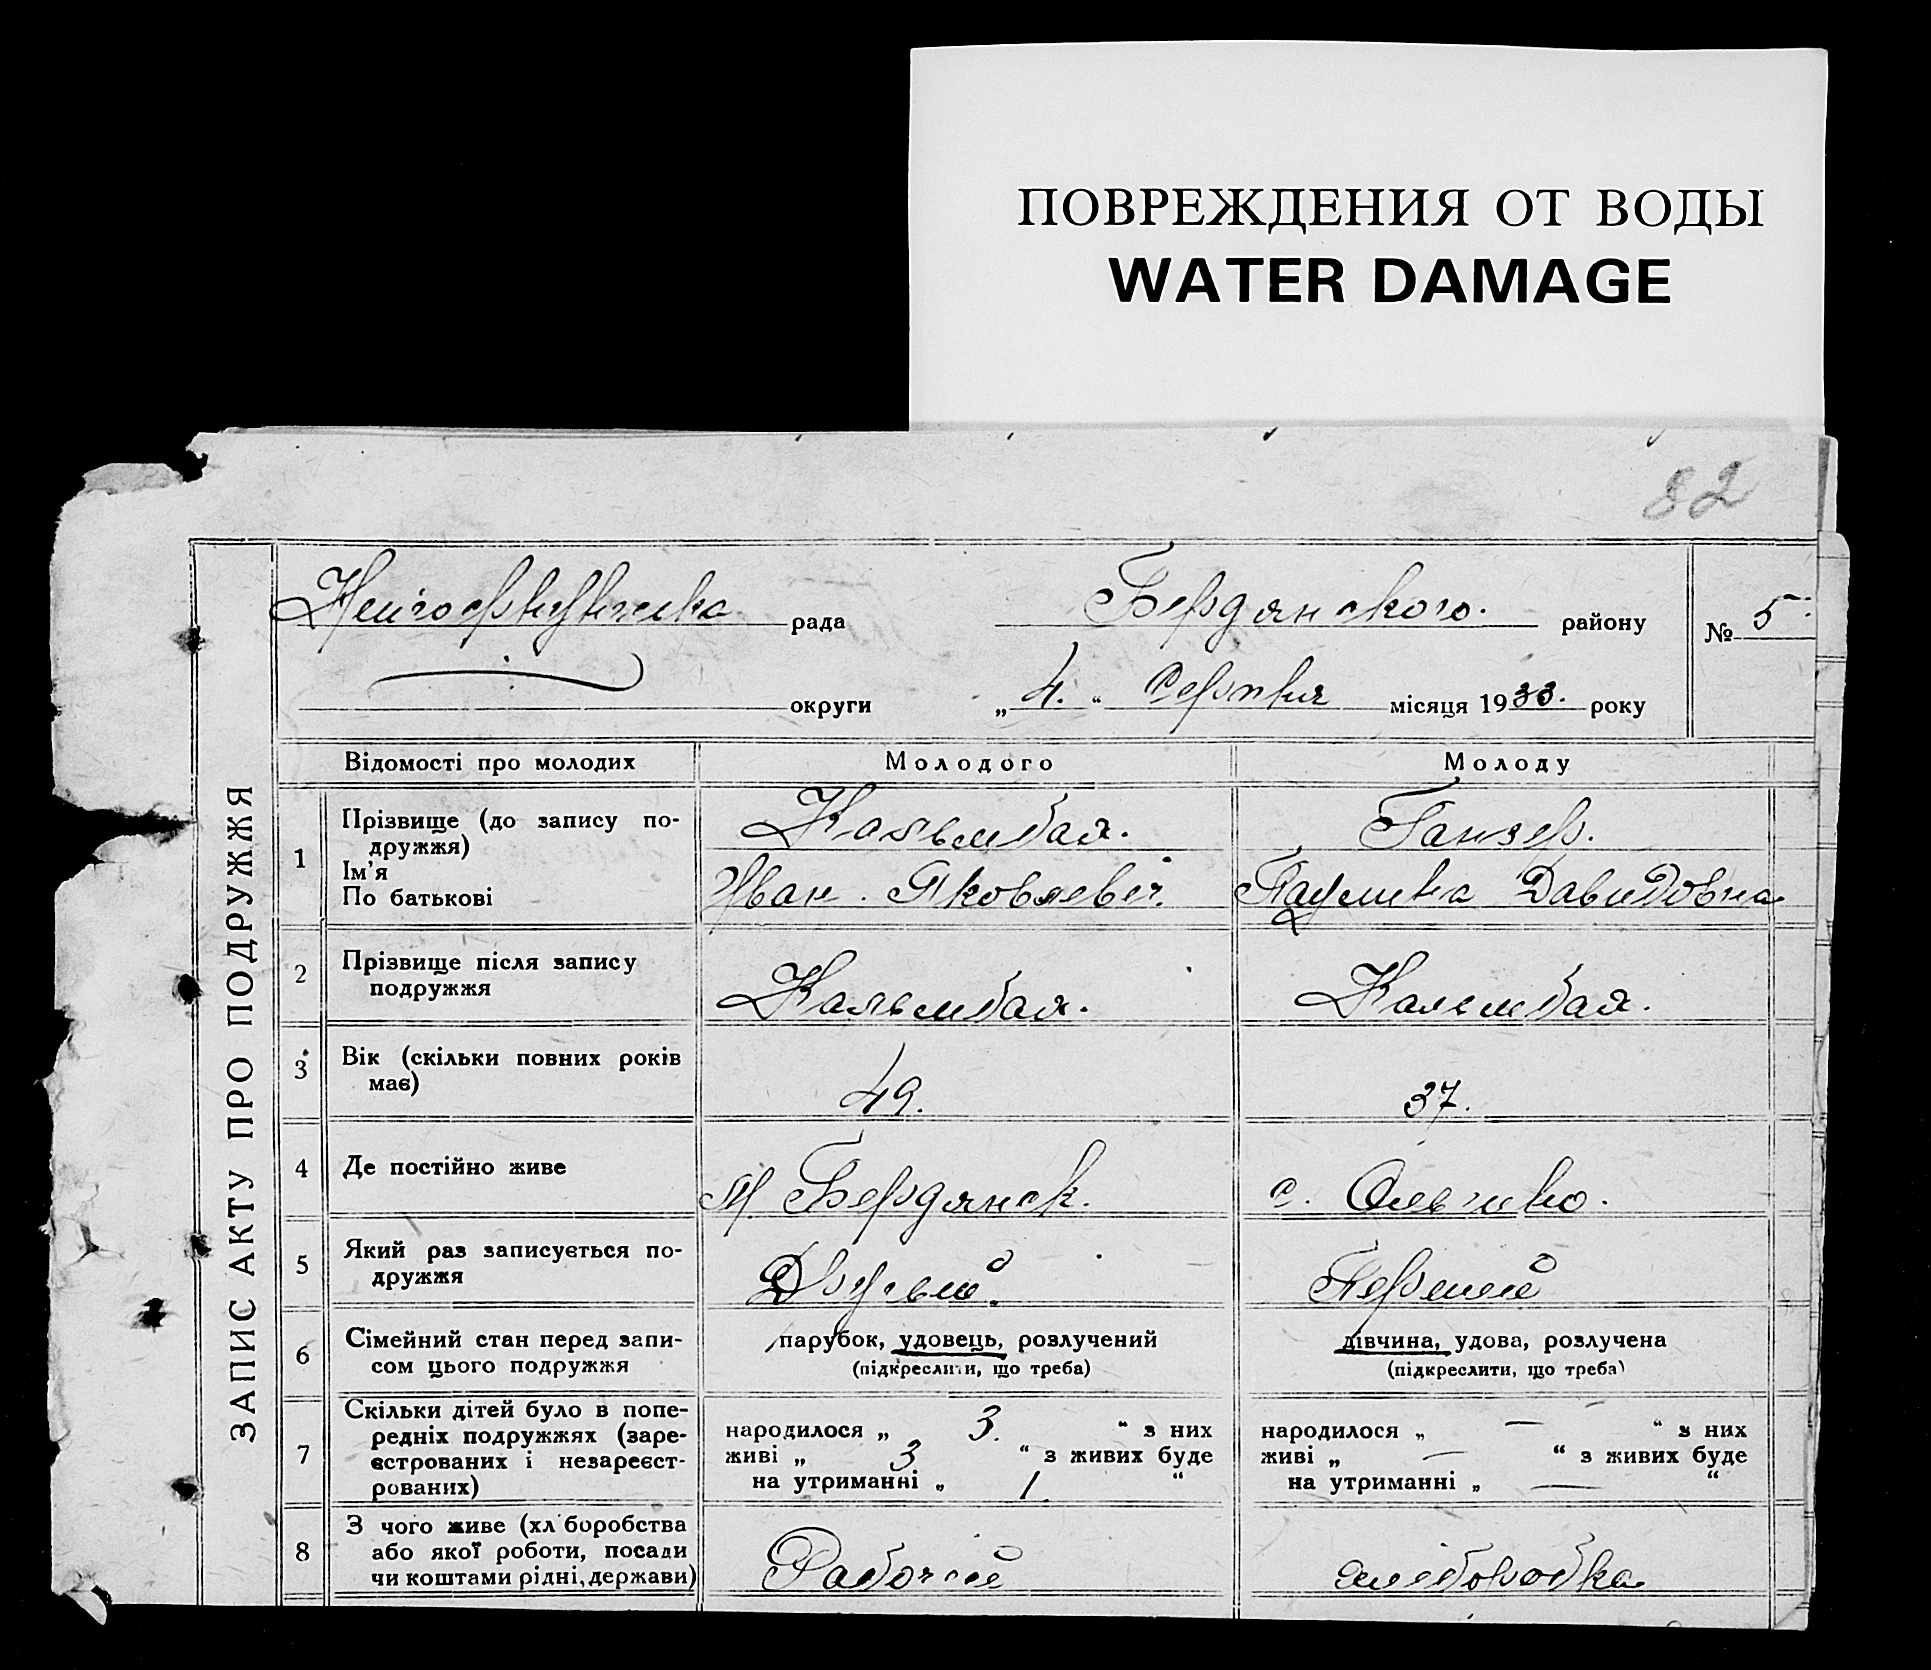 ПОВРЕЖДЕНИЯ ОТ ВОДЫ
WATER DAMAGE
82
ЗАПИС АКТУ ПРО ПОДРУЖЖЯ
рада Бердянского. району № 5
округи „ 4. “ Серпня місяця 1933. року
Відомості про молодих Молодого Молоду
1 Прізвище (до запису по-
дружжя)
Ім’я
По батькові
Кальмбах.
Иван Яковлевіч.
Ганзер.
Паулина Давидовна
2 Прізвище після запису
подружжя
Кальмбах. Кальмбах.
3 Вік (скільки повних років
має)
49. 37.
4 Де постійно живе
м. Бердянск. с.
5 Який раз записується по-
дружжя
Другий. Перший
6 Сімейний стан перед запи-
сом цього подружжя
парубок, удовець, розлучений
(підкреслити, що треба)
дівчина, удова, розлучена
(підкреслити, що треба)
7 Скільки дітей було в попе-
редніх подружжях (заре-
єстрованих і незареєст-
рованих)
народилося „ 3. “ з них
живі „ 3 “ з живих буде
на утриманні „ 1. “
народилося „ — “ з них
живі „ — “ з живих буде
на утриманні „ — “
8 З чого живе (хліборобства
або якої роботи, посади
чи коштами рідні, держави)
Рабочий хліборобка